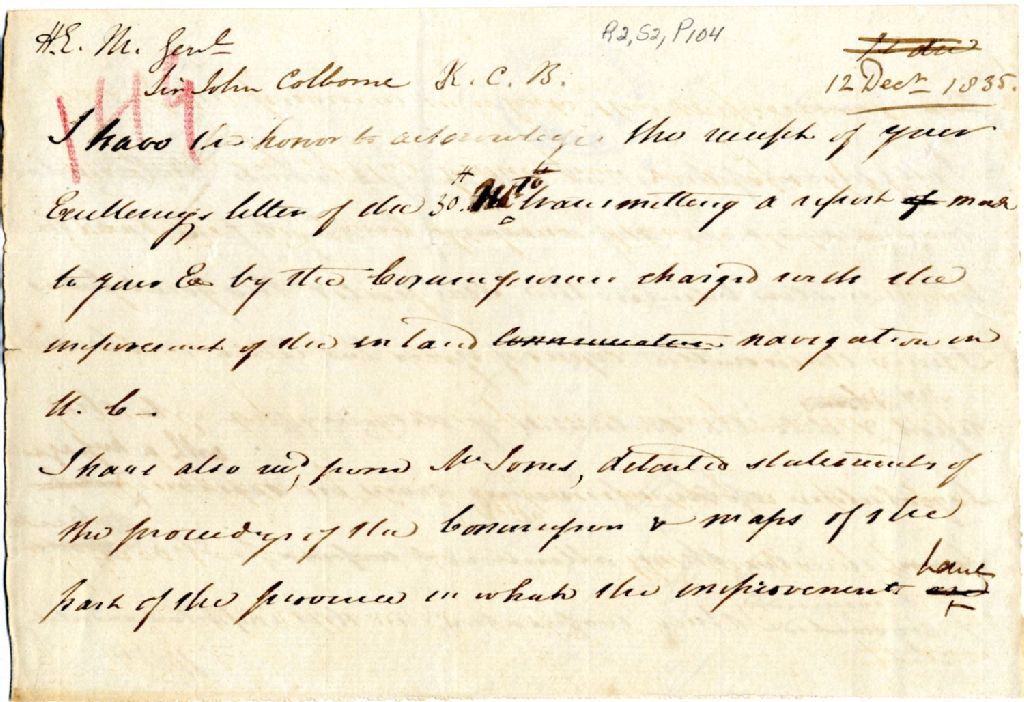 A2, S2, P104
H.E. M. Genl
Sir John Colborne K. C. B.
12 Decr. 1835.
I have the honor to acknowledge the receipt of your
Excellency's letter of the 30th transmitting a report of made
to your Ex by the Commissioners charged with the
improvement of the inland communication navigation in
U. C –
I have also recd from Mr Jones, detailed statements of
the proceedgs of the Commission & maps of the
part of the province in which the improvements have